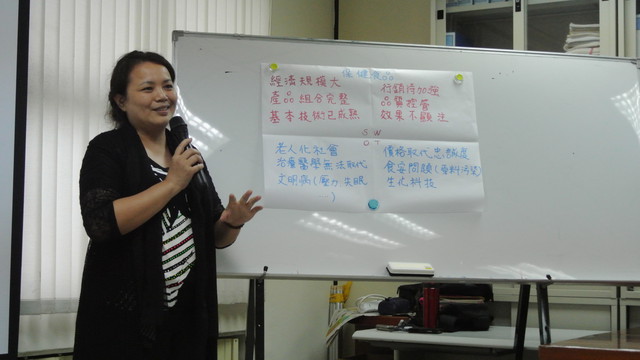 保健食品
經濟規模大
產品組合完整
基本技術已成熟
行銷待加強
品質控管
效果不顯注
S W
O T
老人化社會
治療醫學無法取代
文明病(壓力,失眠
)
價格取代忠誠度
食安問題(原料污染)
生化科技